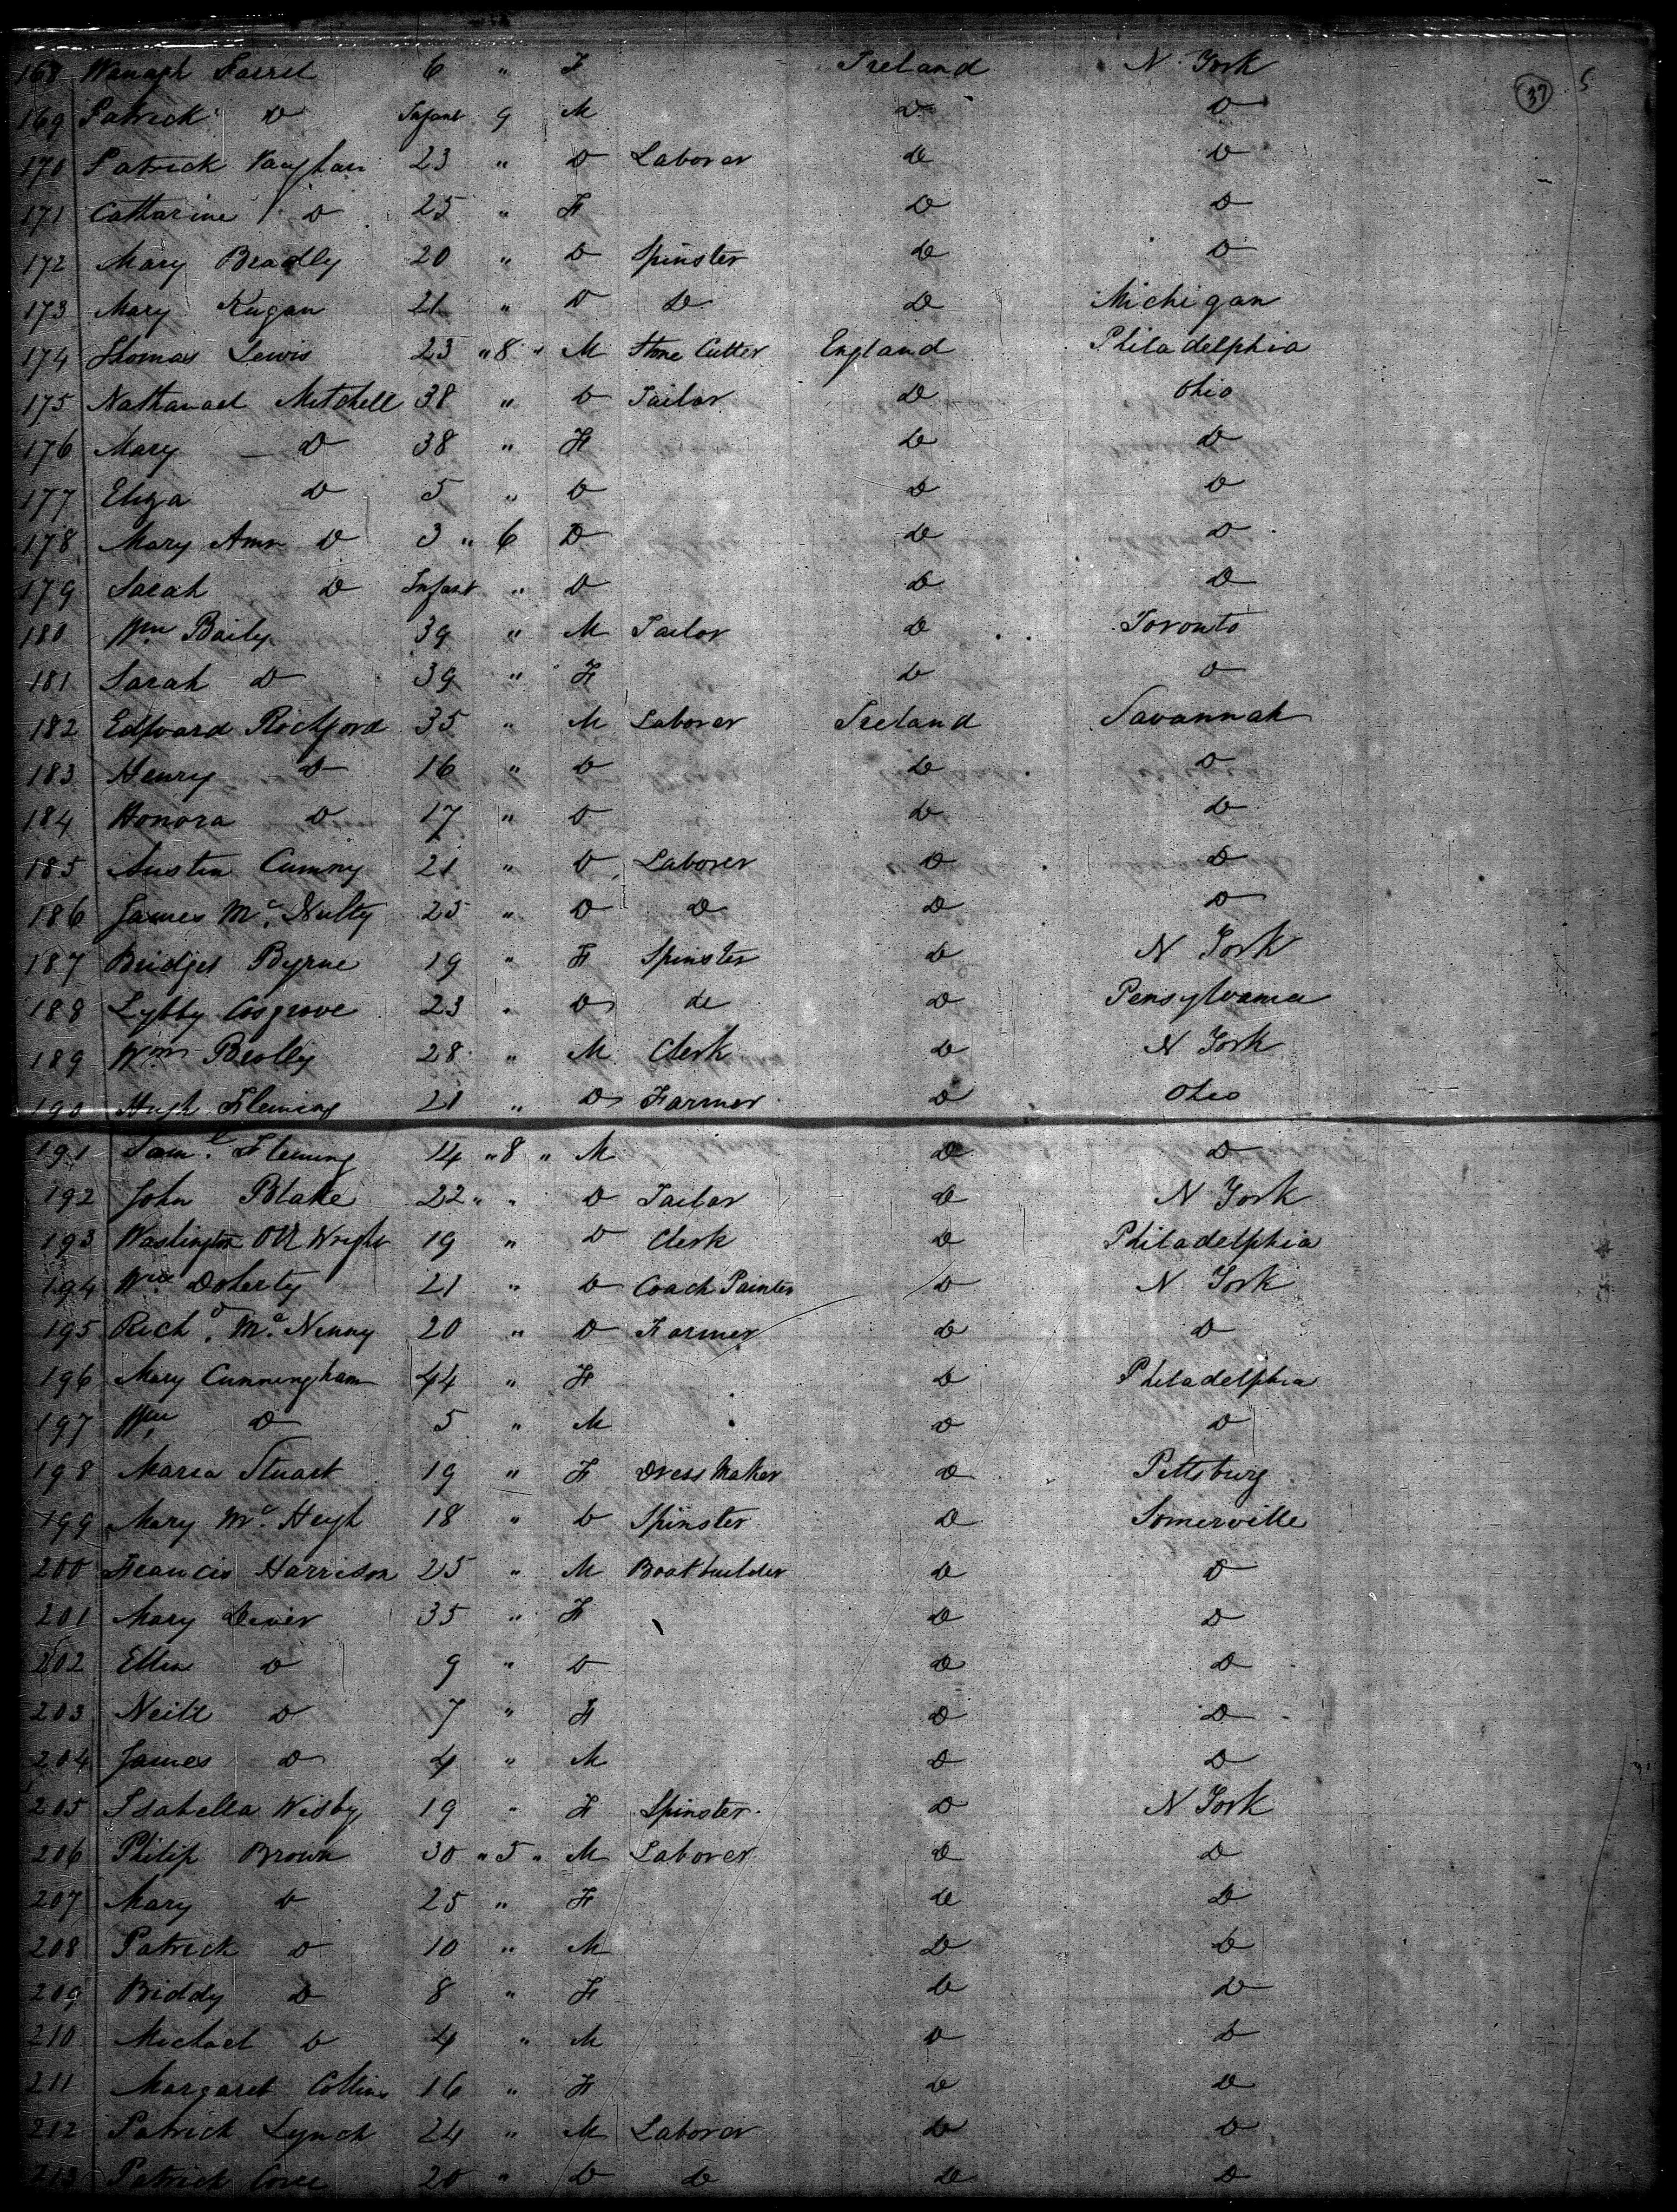 37 5
168 Farrel 6 " F Ireland N. York
169 Patrick D Infant 9 M D D
170 Patrick Vaughan 23 " D Laborer D D
171 Catharine D 25 " F D D
172 Mary Bradly 20 " D Spinster D D
173 Mary Kugan 21 " D D D Michigan
174 Thomas Lewis 23 " 8 " M Stone Cutter England Philadelphia
175 Nathanael Mitchell 38 " D Tailor D Ohio
176 Mary D 38 " F D D
177 Eliza D 5 " D D D
178 Mary Ann D 3 " 6 D D D
179 Sarah D Infant " D D D
180 Wm Baily 39 " M Tailor D Toronto
181 Sarah D 39 " F D D
182 Edward Rochford 35 " M Laborer Ireland Savannah
183 Henry D 16 " D D D
184 Honora D 17 " D D D
185 Austin Cumny 21 " D Laborer D D
186 James Mc Nulty 25 " D D D D
187 Bridget Byrne 19 " F Spinster D N York
188 Lybby Cosgrove 23 " D de D Pensylvania
189 Wm Beolly 28 " M Clerk D N York
190 Hugh Fleming 21 " D Farmer D Ohio
191 Saml. Fleming 14 " 8 " M D D
192 John Blake 22 " " D Tailor D N York
193 Washington Wright 19 " D Clerk D Philadelphia
194 Wm Doherty 21 " D Coach Painter D N York
195 Richd. Mc Ninny 20 " D Farmer D D
196 Mary Cunningham 44 " F D Philadelphia
197 Wm D 5 " M D D
198 Maria Stuart 19 " F Dress Maker D Pittsburg
199 Mary Mc Hugh 18 " D Spinster D Somerville
200 Francis Harrison 25 " M Boatbuilder D D
201 Mary Dever 35 " F D D
202 Ellen D 9 " D D D
203 Neill D 7 " F D D
204 James D 4 " M D D
205 Isabella Wisby 19 " F Spinster D N York
206 Philip Brown 30 " 5 " M Laborer D D
207 Mary D 25 " F D D
208 Patrick D 10 " M D D
209 Biddy D 8 " F D D
210 Michael D 4 " M D D
211 Margaret Collins 16 " F D D
212 Patrick Lynch 24 " M Laborer D D
213 Patrick 20 " D D D D